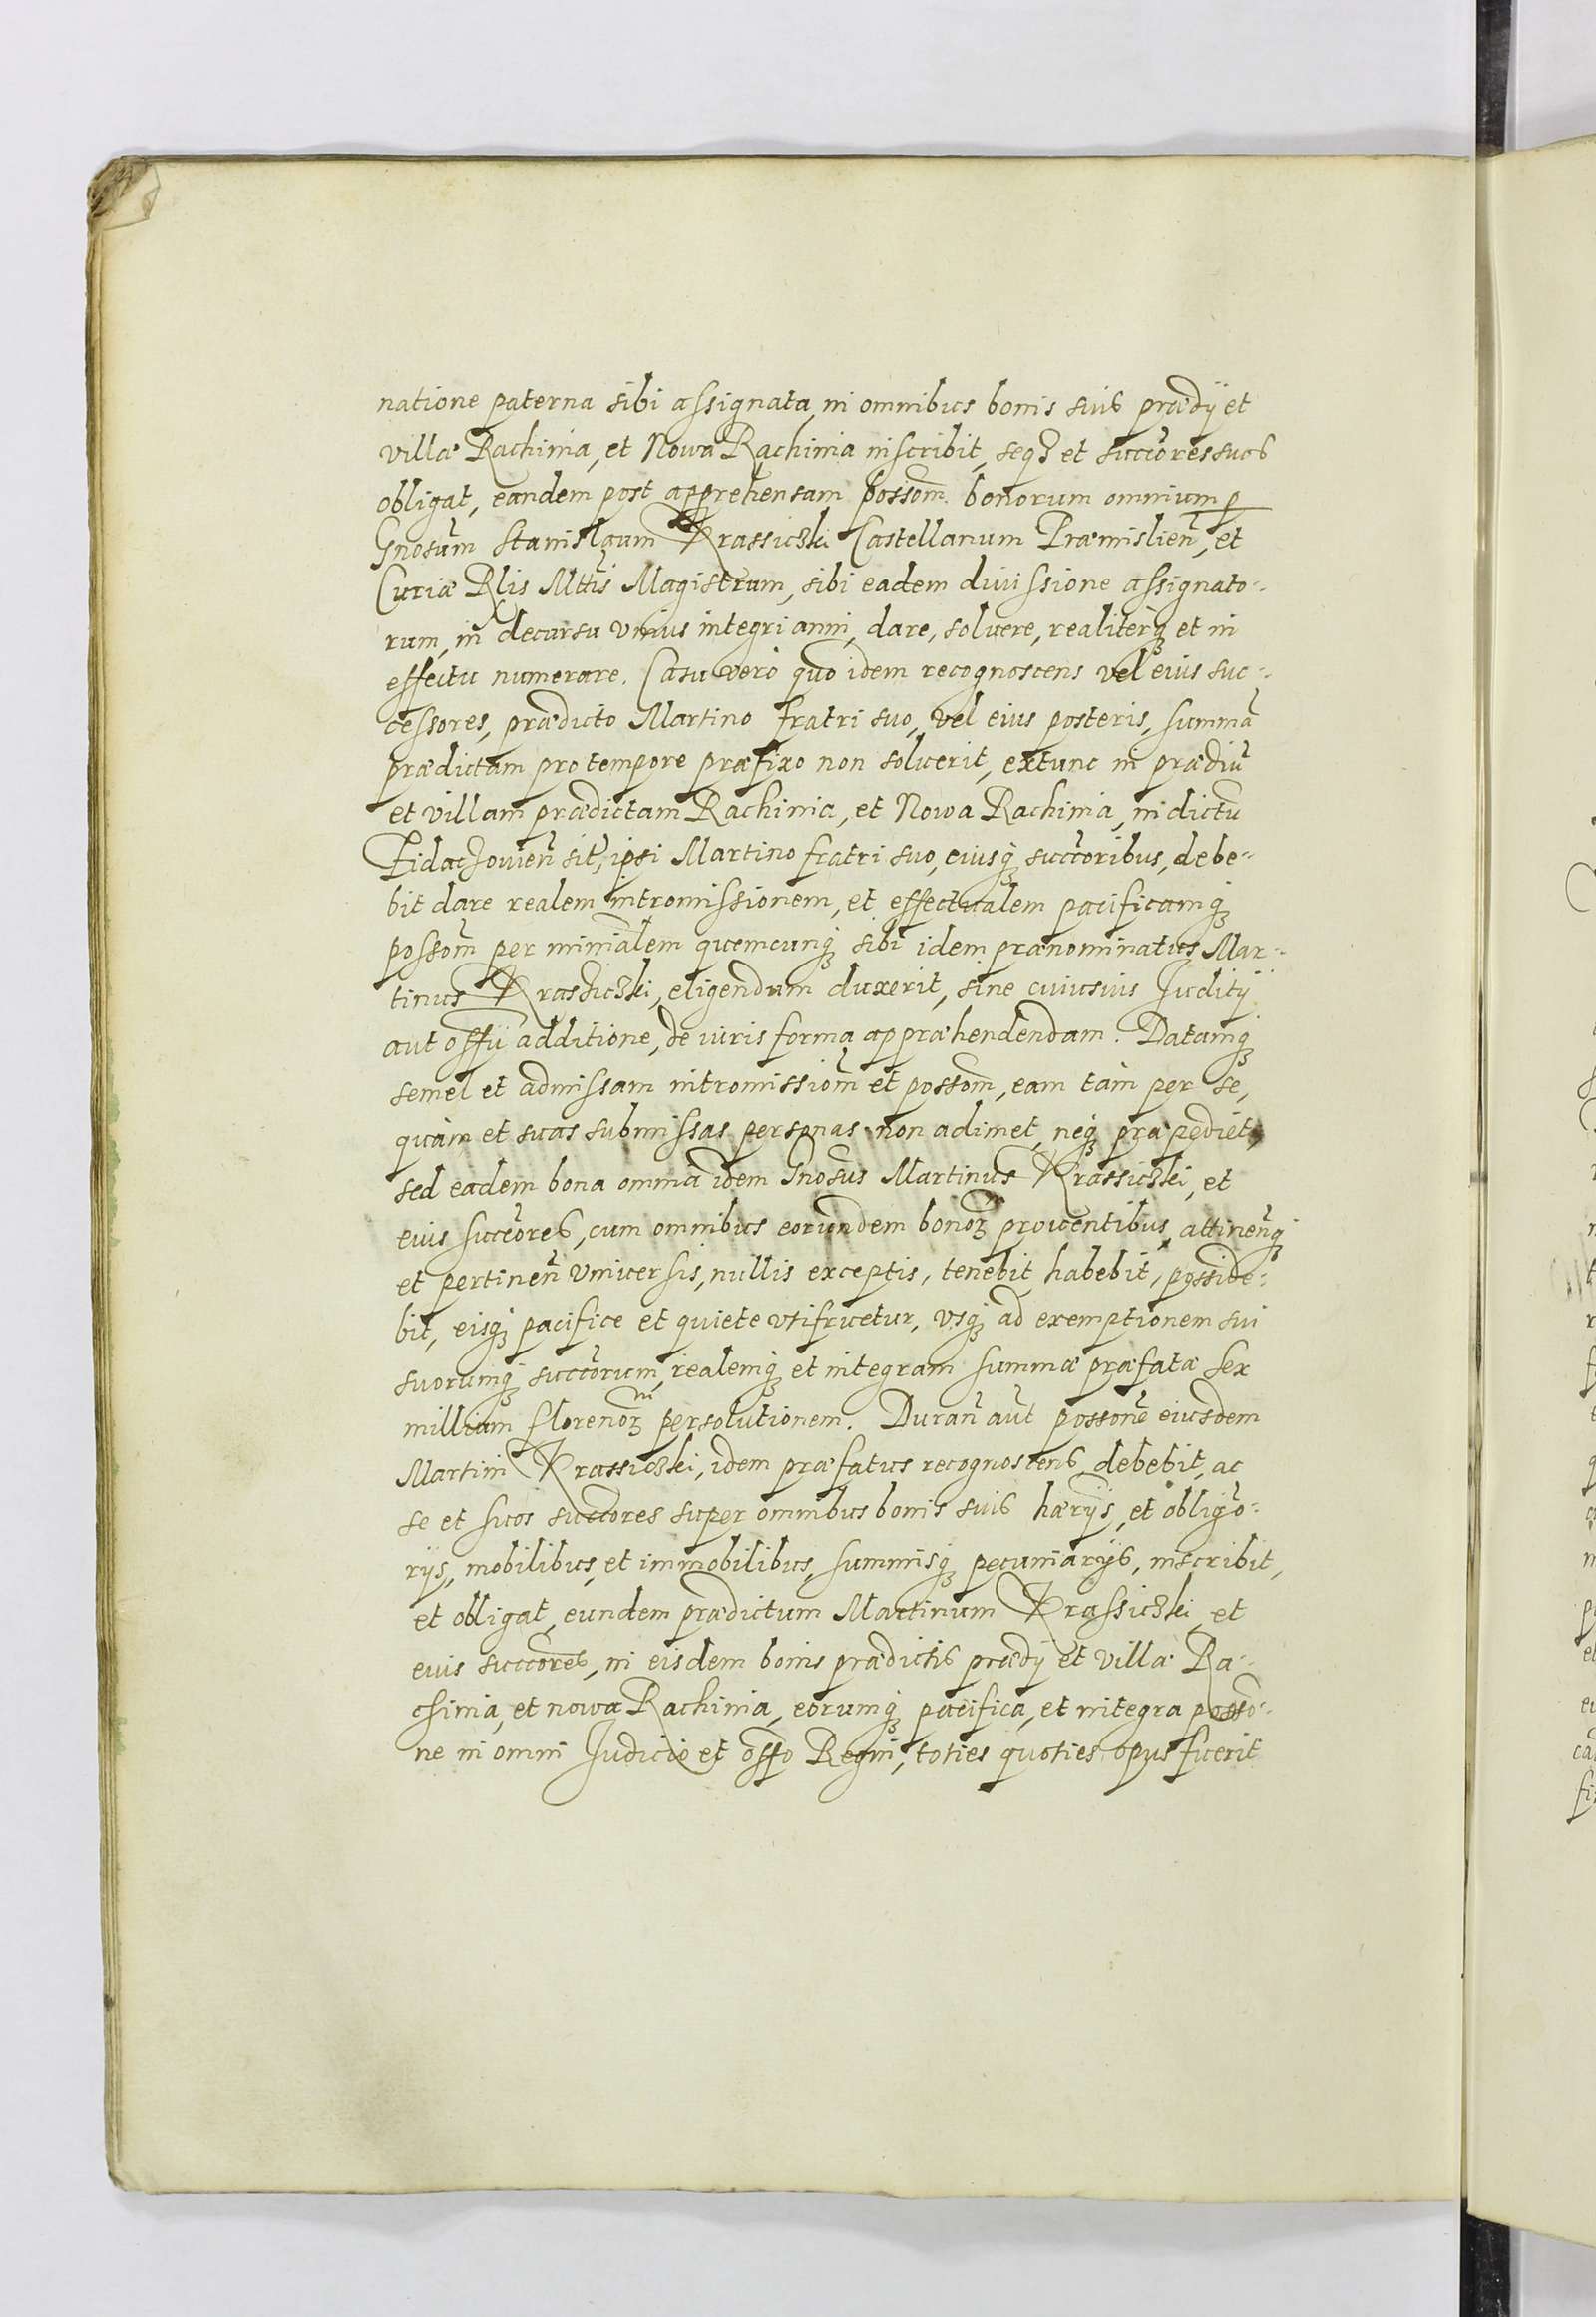 natione paterna sibi assignata, in omnibus bonis suis prædij et
villæ Rachinia, et Nowa Rachinia inscribit, seqȝ et succōres suos
obligat, eandem post apprehensam possom̄. bonorum omnium p
Gnosum̄ Stanislaum Krassiczki Castellanum Præmislien̄, et
Curiæ Rl̄is Mttis̄ Magistrum, sibi eadem diuissione assignato-
rum, in decursu vnius integri anni, dare, soluere, realiterqȝ et in
effectu numerare. Casu verò quo idem recognoscens vel eius suc-
cessores, prædicto Martino fratri suo, vel eius posteris, summā
prædictam pro tempore præfixo non soluerit, extunc in prædiū
et villam prædictam Rachinia, et Nowa Rachinia, in dictū
sit̄, ipsi Martino fratri suo, eiusqȝ succōribus, debe-
bit dare realem intromissionem, et effectualem pacificamqȝ
possom̄ per miniālem quemcunqȝ sibi idem prænominatus Mar-
tinus Krassiczki, eligendum duxerit, sine cuiusuis Juditij
aut offij additione, de iuris forma appræhendendam. Datamqȝ
semel et admissam intromissiom̄ et possom̄, eam tàm per se,
quàm et suas submissas personas non adimet, neqȝ præpediet,
sed eadem bona omnia idem Gnosus̄ Martinus Krassiczki, et
eius succōres, cum omnibus eorundem bonoꝝ prouentibus, attinen̄qȝ
et pertinen̄ vniuersis, nullis exceptis, tenebit, habebit, posside-
bit, eisqȝ pacifice et quiete vtifruetur, vsqȝ ad exemptionem sui
suorumqȝ succōrum, realemqȝ et integram summæ præfatæ sex
millium florenoꝝ persolutionem. Duran̄ aut̄ possonē eiusdem
Martini Krassiczki, idem præfatus recognoscens debebit, ac
se et suos succōres super omnibus bonis suis hærijs, et obligō-
rijs, mobilibus, et immobilibus, summisqȝ pecuniarijs, inscribit,
et obligat, eundem prædictum Martinum Krassiczki et
eius succōres, in eisdem bonis prædictis prædij et villæ Ra-
chinia, et nowa Rachinia, eorumqȝ pacifica, et integra possō-
ne in omni Judicio et offō Regni, toties quoties opus fuerit